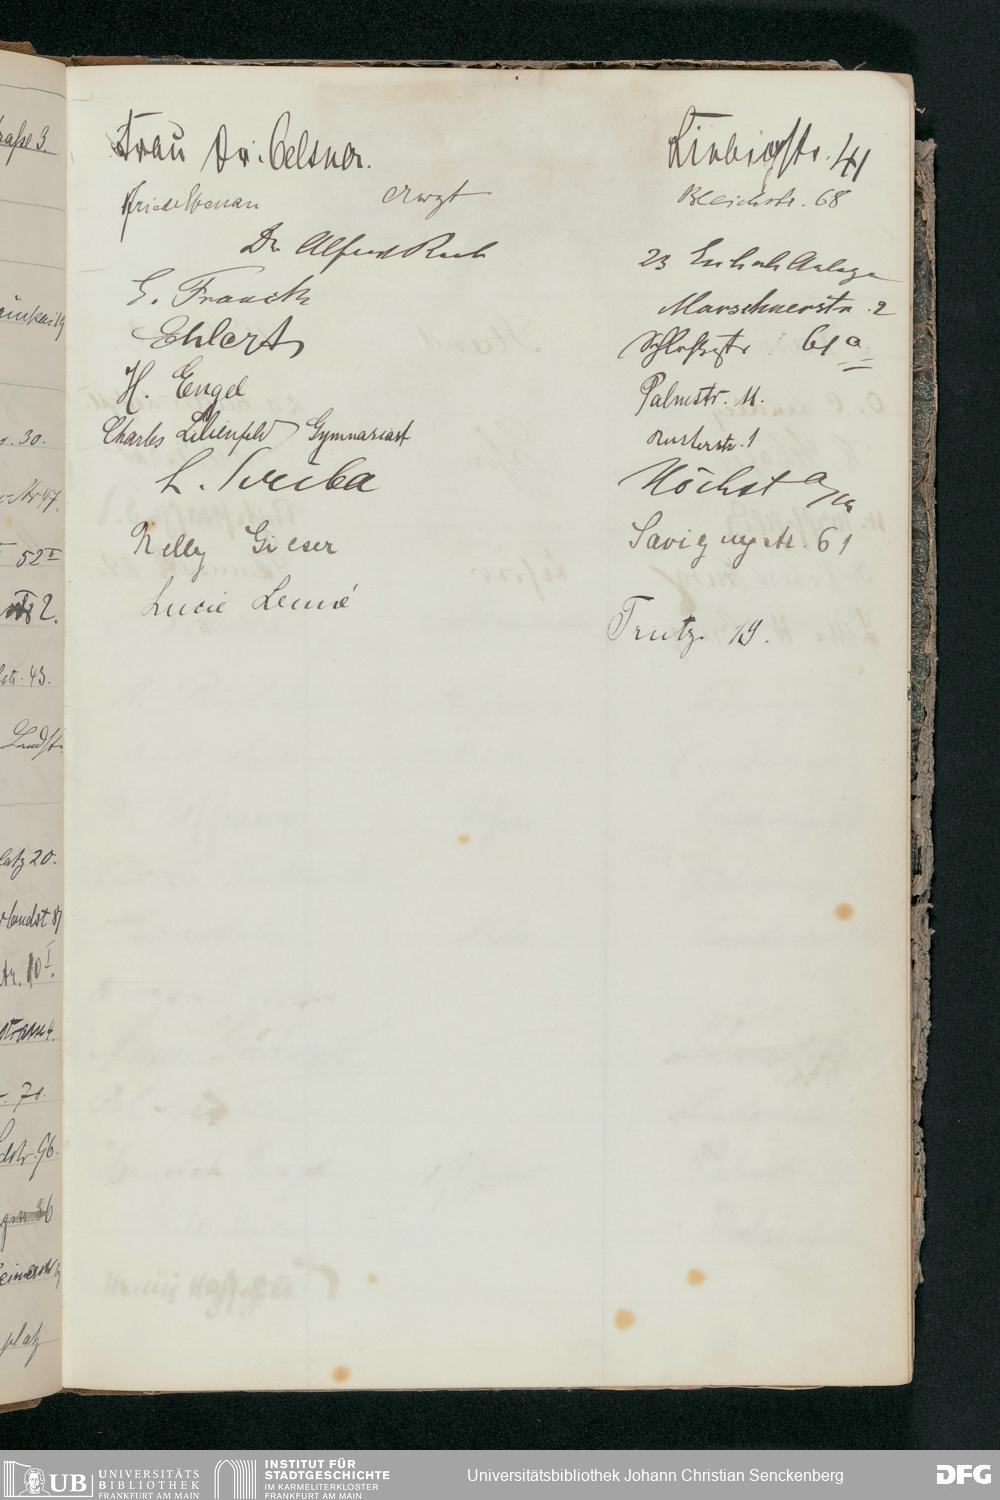 Frau Dr. Oelsner. Liebigstr. 41
Friedebenau Arzt Bleichstr. 68
Dr. Alfred Rach 23 Eschenh. Anlage
E. Franck Marschnerstr. 2
Ehlert Schloßstr. 61a
H. Engel Palmstr. 11.
Charles Lilienfeld Gymnasiast Austerstr. 1
L. Scriba Höchst a/M
Nelly Gieser Savignystr. 61
Lucie Lemé
Trutz 19.
raße 3.
. 30.
Nr 47.
52 II
2.
str. 43.
Landstr.
latz 20.
tr. 10 I.
. 70.
dstr. 96.
36
platz
UB UNIVERSITÄTS
BIBLIOTHEK
FRANKFURT AM MAIN
INSTITUT FÜR
STADTGESCHICHTE
IM KARMELITERKLOSTER
FRANKFURT AM MAIN
Universitätsbibliothek Johann Christian Senckenberg
DFG